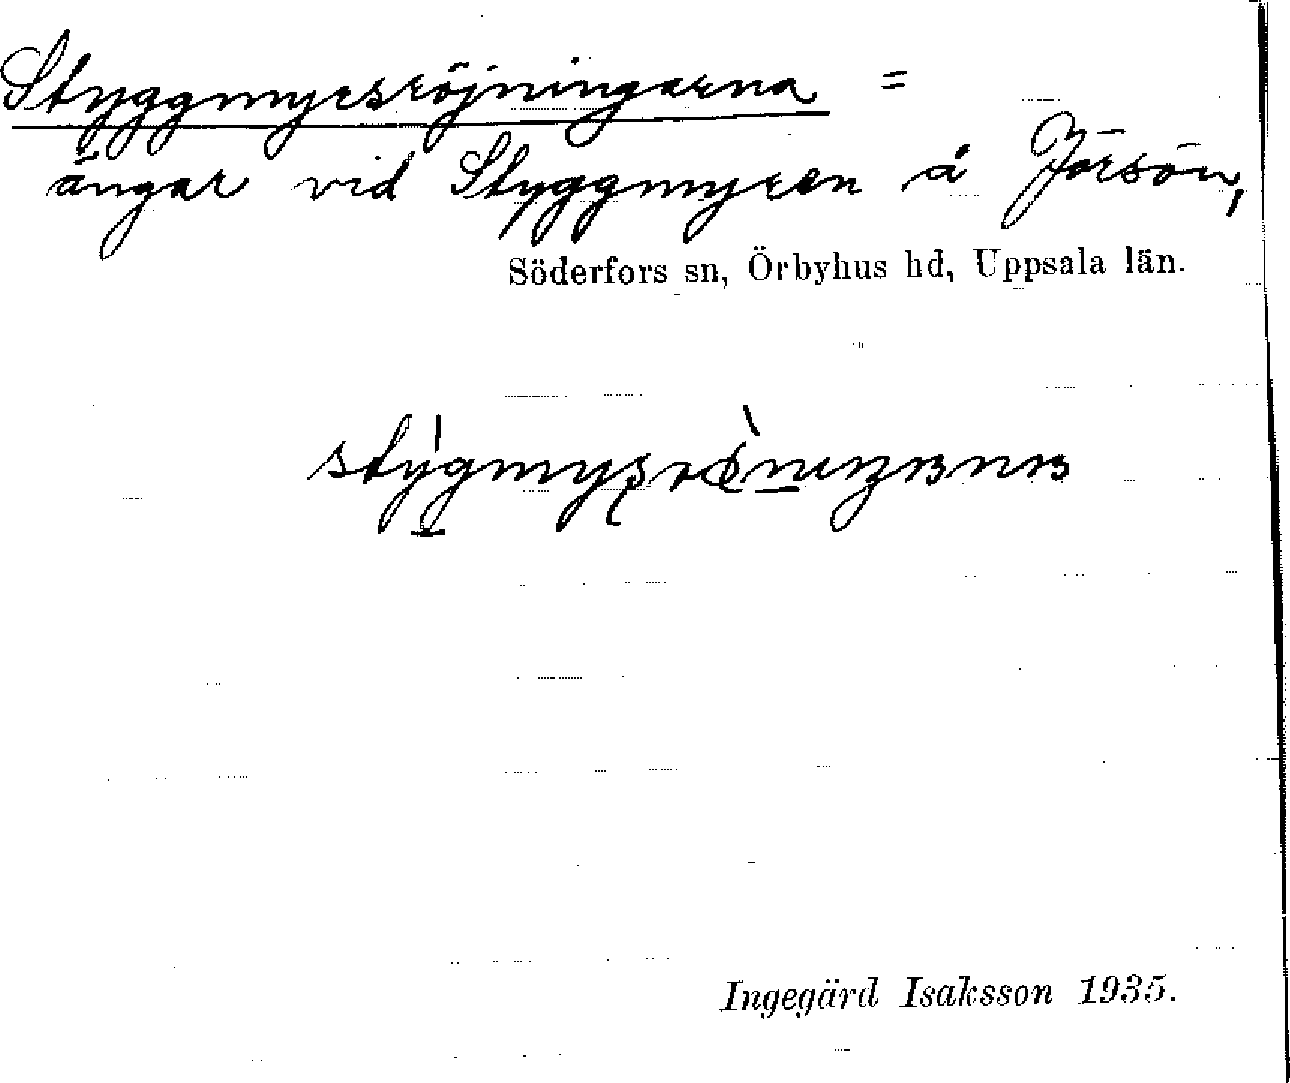 Styggmyrsröjningarna =
ängar vid Styggmyren å Jörsön,
Söderfors sn, Örbyhus hd, Uppsala län.
Ingegärd Isaksson 1935.